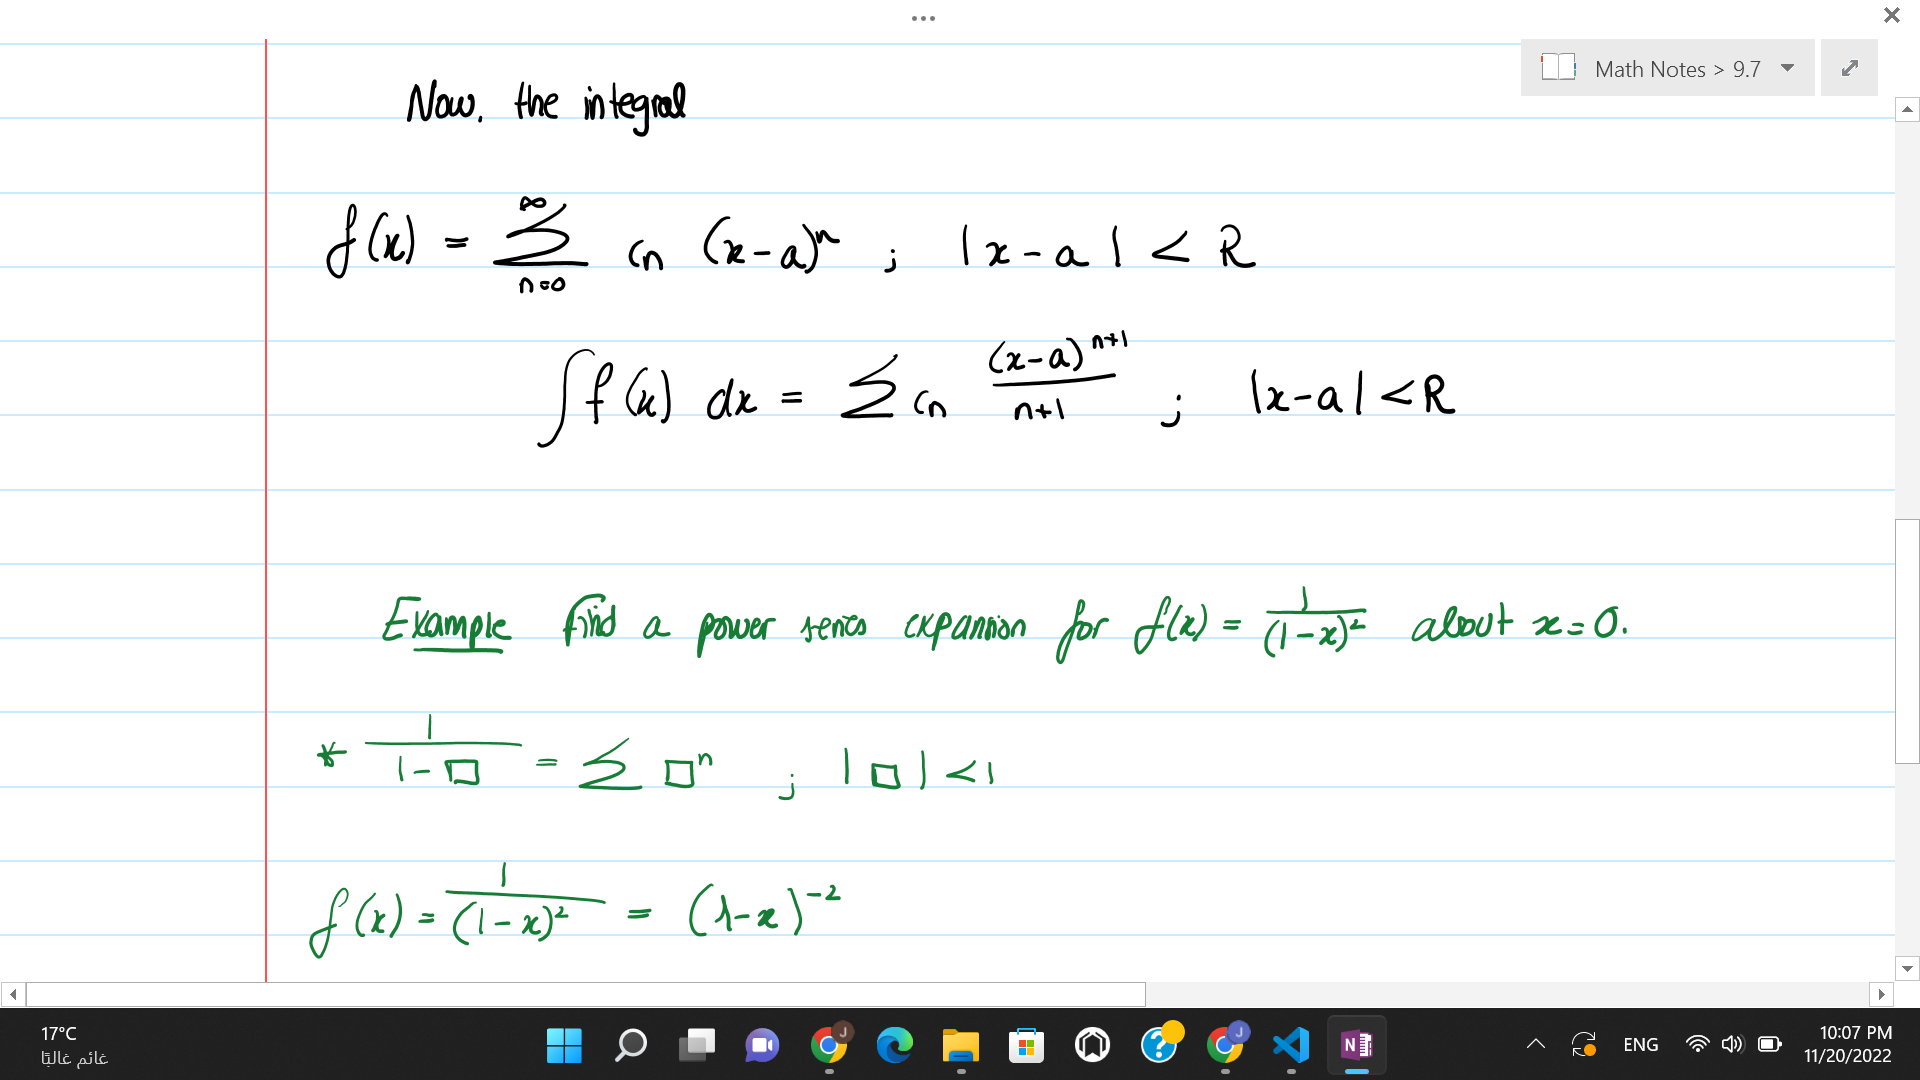 Math Notes > 9.7
Now, the integral
f(x) = ∑ₙ₌₀^∞ cn (x-a)ⁿ ; |x-a| < R
∫f(x) dx = ∑ cn (x-a)ⁿ⁺¹/(n+1) ; |x-a| < R
Example find a power series expansion for f(x) = 1/(1-x)² about x=0.
* 1/(1-□) = ∑ □ⁿ ; |□| < 1
f(x) = 1/(1-x)² = (1-x)⁻²
17°C
غائم غالبًا
J
J
N
ENG
10:07 PM
11/20/2022